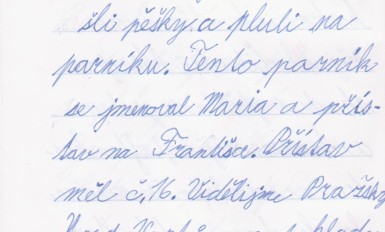 šli pěšky a pluli na
parníku. Tento parník
se jmenoval Maria a přís-
tav na Františc. Přístav
měl č. 16. Viděli jme Pražský
Hrad